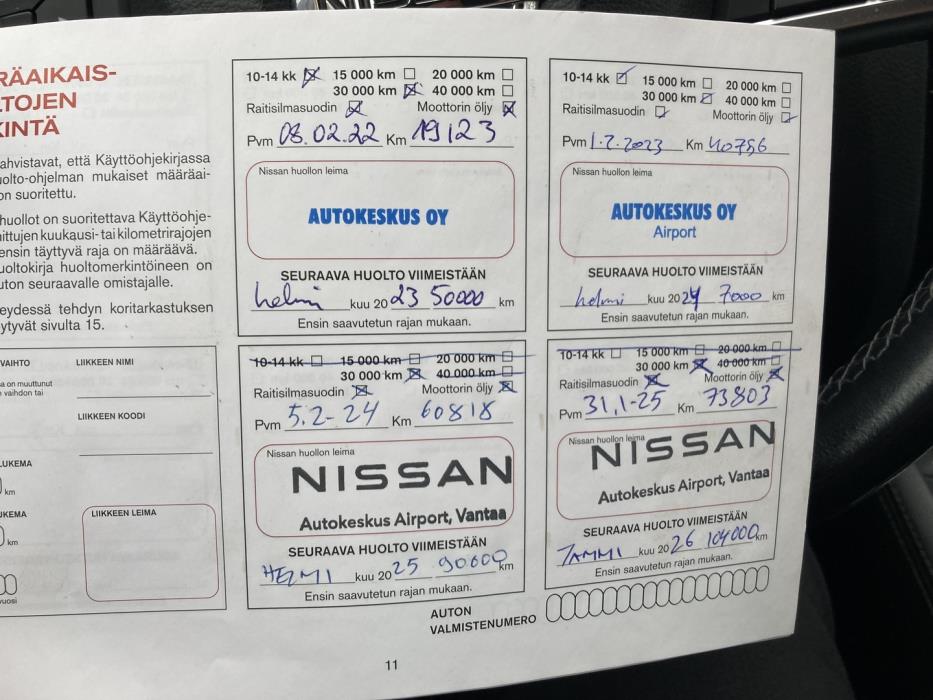 RÄAIKAIS-
LTOJEN
KINTÄ
ahvistavat, että Käyttöohjekirjassa
uolto-ohjelman mukaiset määräai-
on suoritettu.
huollot on suoritettava Käyttöohje-
nittujen kuukausi- tai kilometrirajojen
ensin täyttyvä raja on määräävä.
uoltokirja huoltomerkintöineen on
uton seuraavalle omistajalle.
eydessä tehdyn koritarkastuksen
ytyvät sivulta 15.
VAIHTO LIIKKEEN NIMI
a on muuttunut
n vaihdon tai
LIIKKEEN KOODI
LUKEMA
km
UKEMA LIIKKEEN LEIMA
km
vuosi
10-14 kk 15 000 km 20 000 km
30 000 km 40 000 km
Raitisilmasuodin Moottorin öljy
Pvm 08.02.22 Km 19123
Nissan huollon leima
AUTOKESKUS OY
SEURAAVA HUOLTO VIIMEISTÄÄN
helmi kuu 2023 50000 km
Ensin saavutetun rajan mukaan.
10-14 kk 15 000 km 20 000 km
30 000 km 40 000 km
Raitisilmasuodin Moottorin öljy
Pvm 1.2.2023 Km 40756
Nissan huollon leima
AUTOKESKUS OY
Airport
SEURAAVA HUOLTO VIIMEISTÄÄN
helmi kuu 2024 7000 km
Ensin saavutetun rajan mukaan.
10-14 kk 15 000 km 20 000 km
30 000 km 40 000 km
Raitisilmasuodin Moottorin öljy
Pvm 5.2-24 Km 60818
Nissan huollon leima
NISSAN
Autokeskus Airport, Vantaa
SEURAAVA HUOLTO VIIMEISTÄÄN
HELMI kuu 2025 90000 km
Ensin saavutetun rajan mukaan.
10-14 kk 15 000 km 20 000 km
30 000 km 40 000 km
Raitisilmasuodin Moottorin öljy
Pvm 31.1-25 Km 73803
Nissan huollon leima
NISSAN
Autokeskus Airport, Vantaa
SEURAAVA HUOLTO VIIMEISTÄÄN
TAMMI kuu 2026 104000 km
Ensin saavutetun rajan mukaan.
AUTON
VALMISTENUMERO
11